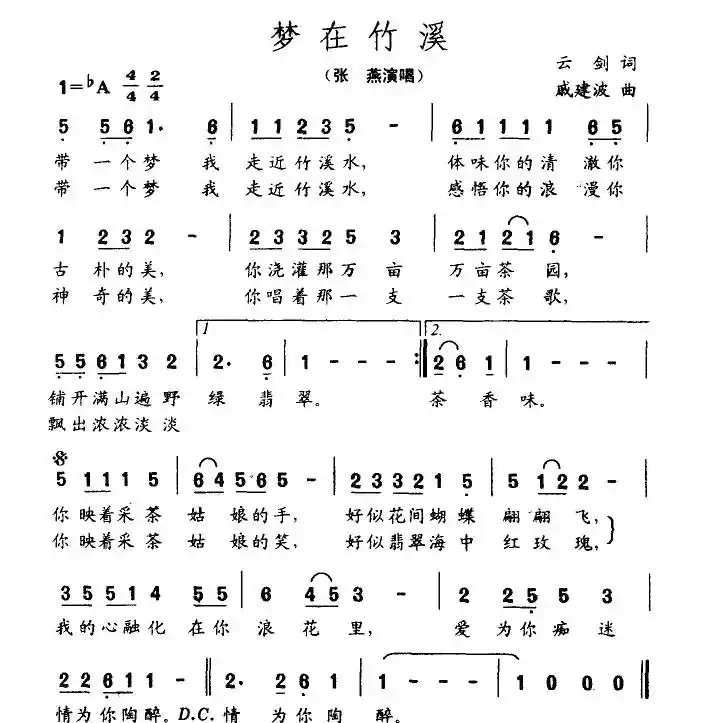 梦在竹溪
(张 燕演唱)
云 剑 词
戚建波 曲
1=♭A 4/4 2/4
5 5 6 1. 6 | 1 1 2 3 5 - | 6 1 1 1 1 6 5 |
带 一个梦 我 走近竹溪水, 体味你的清 澈你
带 一个梦 我 走近竹溪水, 感悟你的浪 漫你
1 2 3 2 - | 2 3 3 3 2 5 3 | 2 1 2 1 6 - |
古 朴的美, 你浇灌那万 亩 万亩茶 园,
神 奇的美, 你唱着那一 支 一支茶 歌,
1 2.
5 5 6 1 3 2 | 2. 6 | 1 - - - :| 2 6 1 | 1 - - - |
铺开满山遍 野 绿 翡 翠。 茶 香 味。
飘出浓浓淡 淡
5 1 1 1 5 | 6 4 5 6 5 - | 2 3 3 2 1 5 | 5 1 2 2 - |
你 映着采 茶 姑 娘的手, 好似花间蝴 蝶 翩 翩 飞,
你 映着采 茶 姑 娘的笑, 好似翡翠海 中 红 玫 瑰,
3 5 5 1 4 5 5 | 6 4 5 3 - | 2 2 5 5 3 |
我的心融化 在你 浪 花 里, 爱 为你 痴 迷
2 2 6 1 1 - || 2. 6 | 1 - - - | 1 0 0 0 ||
情为你陶醉。D.C. 情 为 你 陶 醉。